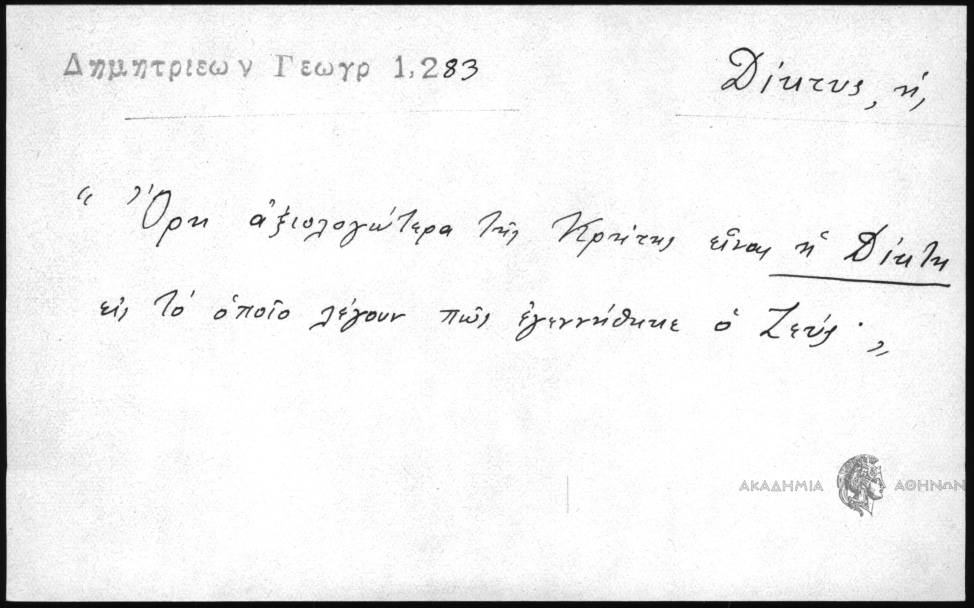 Δημητριεων Γεωγρ 1,283
Δίκτυς, ἡ,
“ Ὄρη ἀξιολογώτερα τῆς Κρήτης εἶναι ἡ Δίκτη
εἰς τὸ ὁποῖο λέγουν πῶς ἐγεννήθηκε ὁ Ζεύς· „
ΑΚΑΔΗΜΙΑ ΑΘΗΝΩΝ